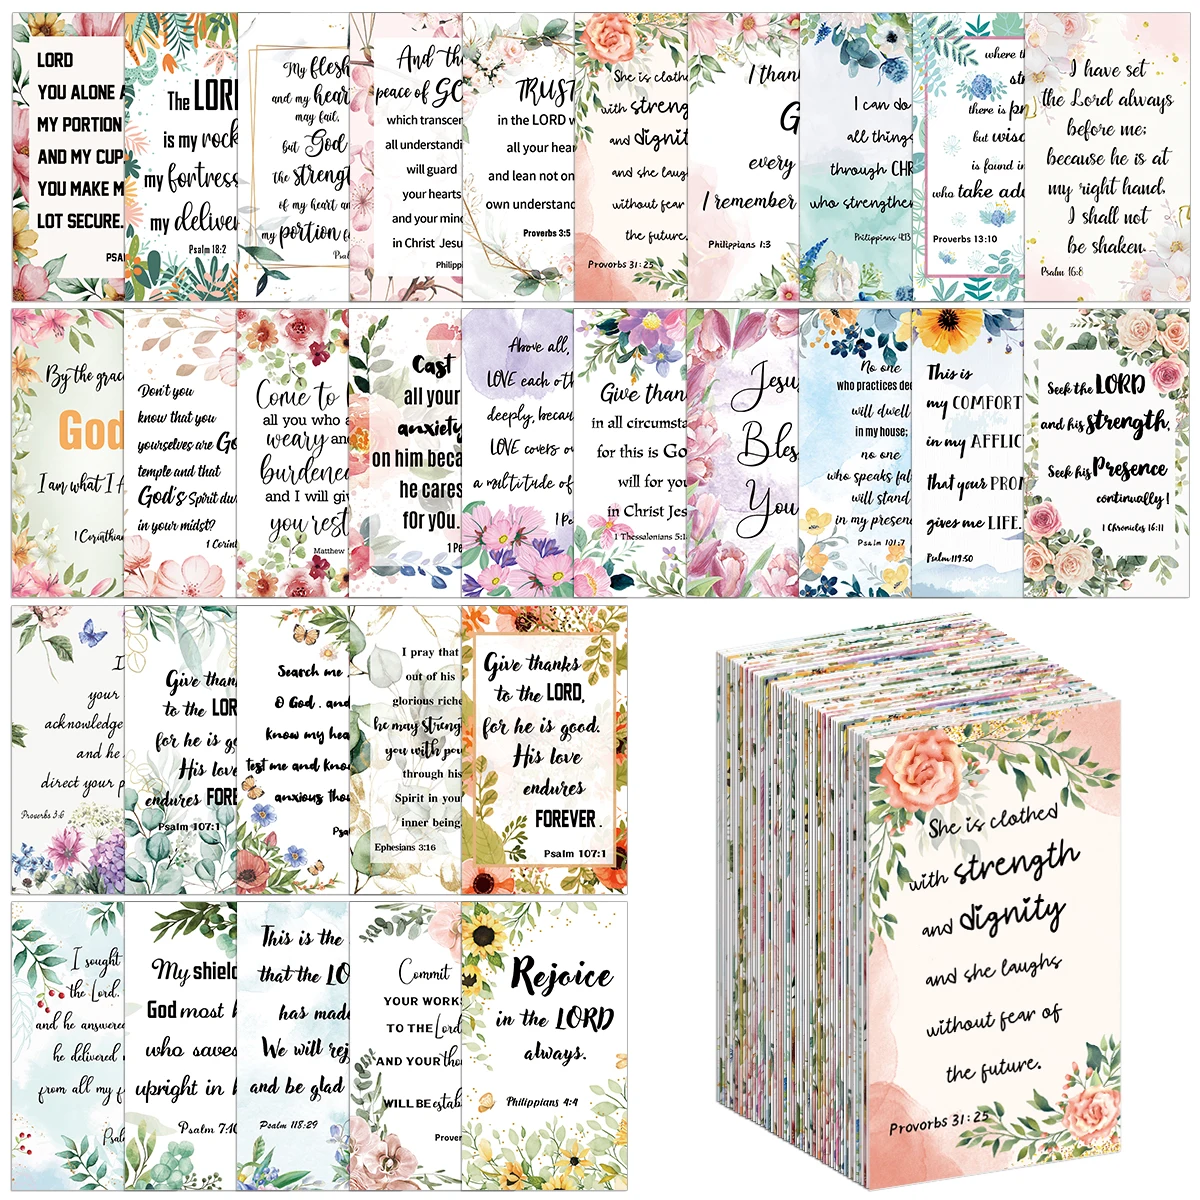 LORD
YOU ALONE
MY PORTION
AND MY CUP
YOU MAKE M
LOT SECURE.
PSA
The LORD
is my rock
my fortress
my deliver
Psalm 18:2
My flesh
and my hear
may fail,
but God
the strengt
of my heart an
my portion
Psal
And the
peace of GO
which transcen
all understandi
will guard
your hearts
and your mind
in Christ Jesu
Philippi
TRUST
in the LORD w
all your hear
and lean not on
own understand
Proverbs 3:5
She is cloth
with streng
and dignit
and she laugh
without fear
the future.
Proverbs 31:25
I than
G
every
I remember
Philippians 1:3
I can do
all things
through CHR
who strengthen
Philippians 4:13
where th
there is
but wisd
is found in
who take adv
Proverbs 13:10
I have set
the Lord always
before me;
because he is at
my right hand,
I shall not
be shaken.
Psalm 16:8
By the grac
God
I am what I A
1 Corinthian
Don't you
know that you
yourselves are Go
temple and that
God's Spirit dw
in your midst?
1 Corint
Come to
all you who a
weary and
burdened
and I will giv
you rest
Matthew
Cast
all your
anxiety
on him beca
he cares
for you.
1 Pe
Above all,
LOVE each oth
deeply, becau
LOVE covers o
a multitude of
1 Pe
Give than
in all circumsta
for this is Go
will for you
in Christ Jes
1 Thessalonians 5:1
Jesu
Bles
You
No one
who practices dec
will dwell
in my house;
no one
who speaks fal
will stand
in my presenc
Psalm 101:7
This is
my COMFORT
in my AFFLIC
that your PROM
gives me LIFE.
Psalm 119:50
Seek the LORD
and his strength,
Seek his Presence
continually!
1 Chronicles 16:11
I
your
acknowledge
and he
direct your p
Proverbs 3:6
Give than
to the LOR
for he is go
His love
endures FORE
Psalm 107:1
Search me
O God, and
know my hea
test me and know
anxious thou
Psa
I pray that
out of his
glorious riche
he may streng
you with pow
through his
Spirit in you
inner being
Ephesians 3:16
Give thanks
to the LORD,
for he is good.
His love
endures
FOREVER.
Psalm 107:1
I sought
the Lord,
and he answered
he delivered
from all my f
Psal
My shield
God most h
who saves
upright in h
Psalm 7:10
This is the
that the LO
has made
We will rej
and be glad
Psalm 118:29
Commit
YOUR WORKS
TO THE Lord
AND YOUR tho
WILL BE estab
Prover
Rejoice
in the LORD
always.
Philippians 4:4
She is clothed
with strength
and dignity
and she laughs
without fear of
the future.
Proverbs 31:25